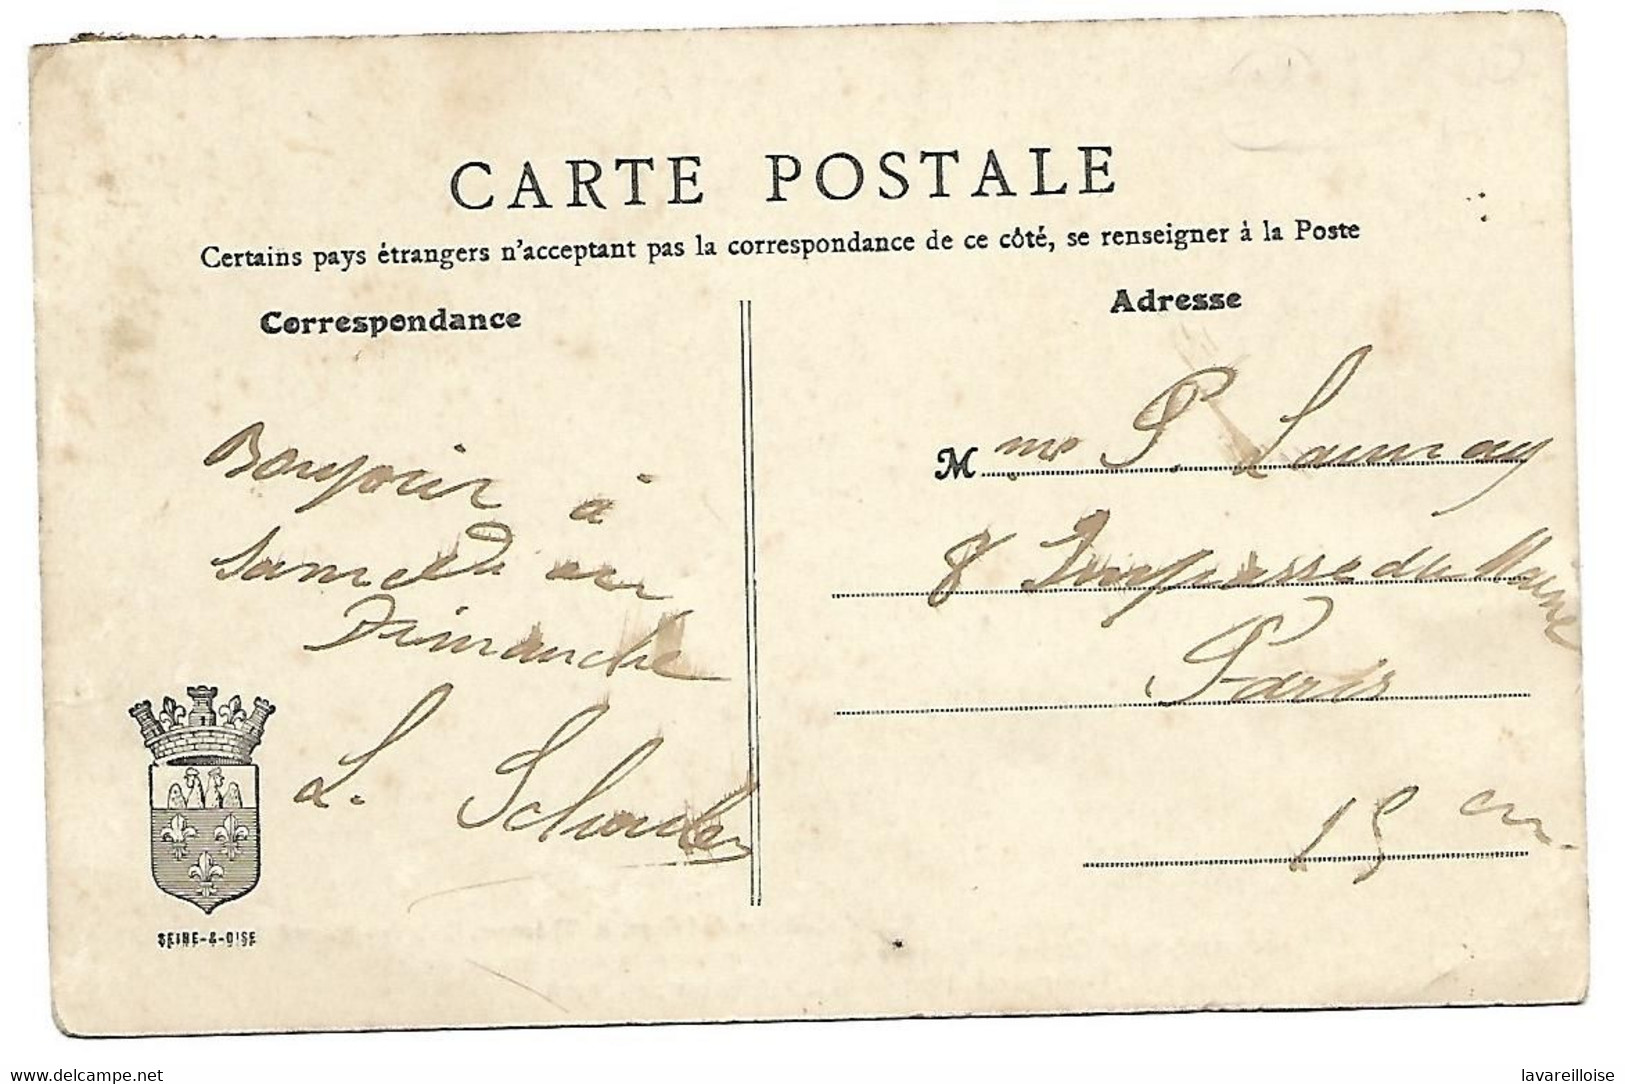 CARTE POSTALE
Certains pays étrangers n'acceptant pas la correspondance de ce côté, se renseigner à la Poste
Correspondance
Bonjour à
Samedi ou
Dimanche
L.
SEINE-&-OISE
Adresse
Mme P. Launay
8 Impasse du Maine
Paris
15 em
www.delcampe.net
lavareilloise